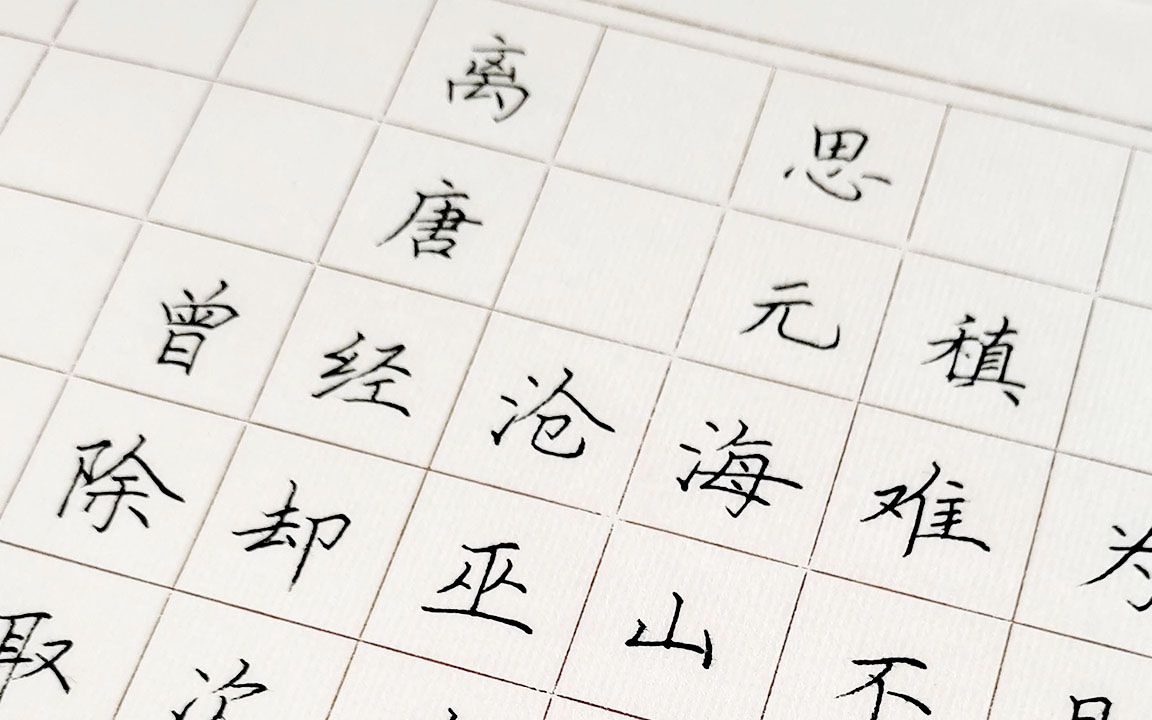 离思
唐元稹
曾经沧海难为
除却巫山不是
取次